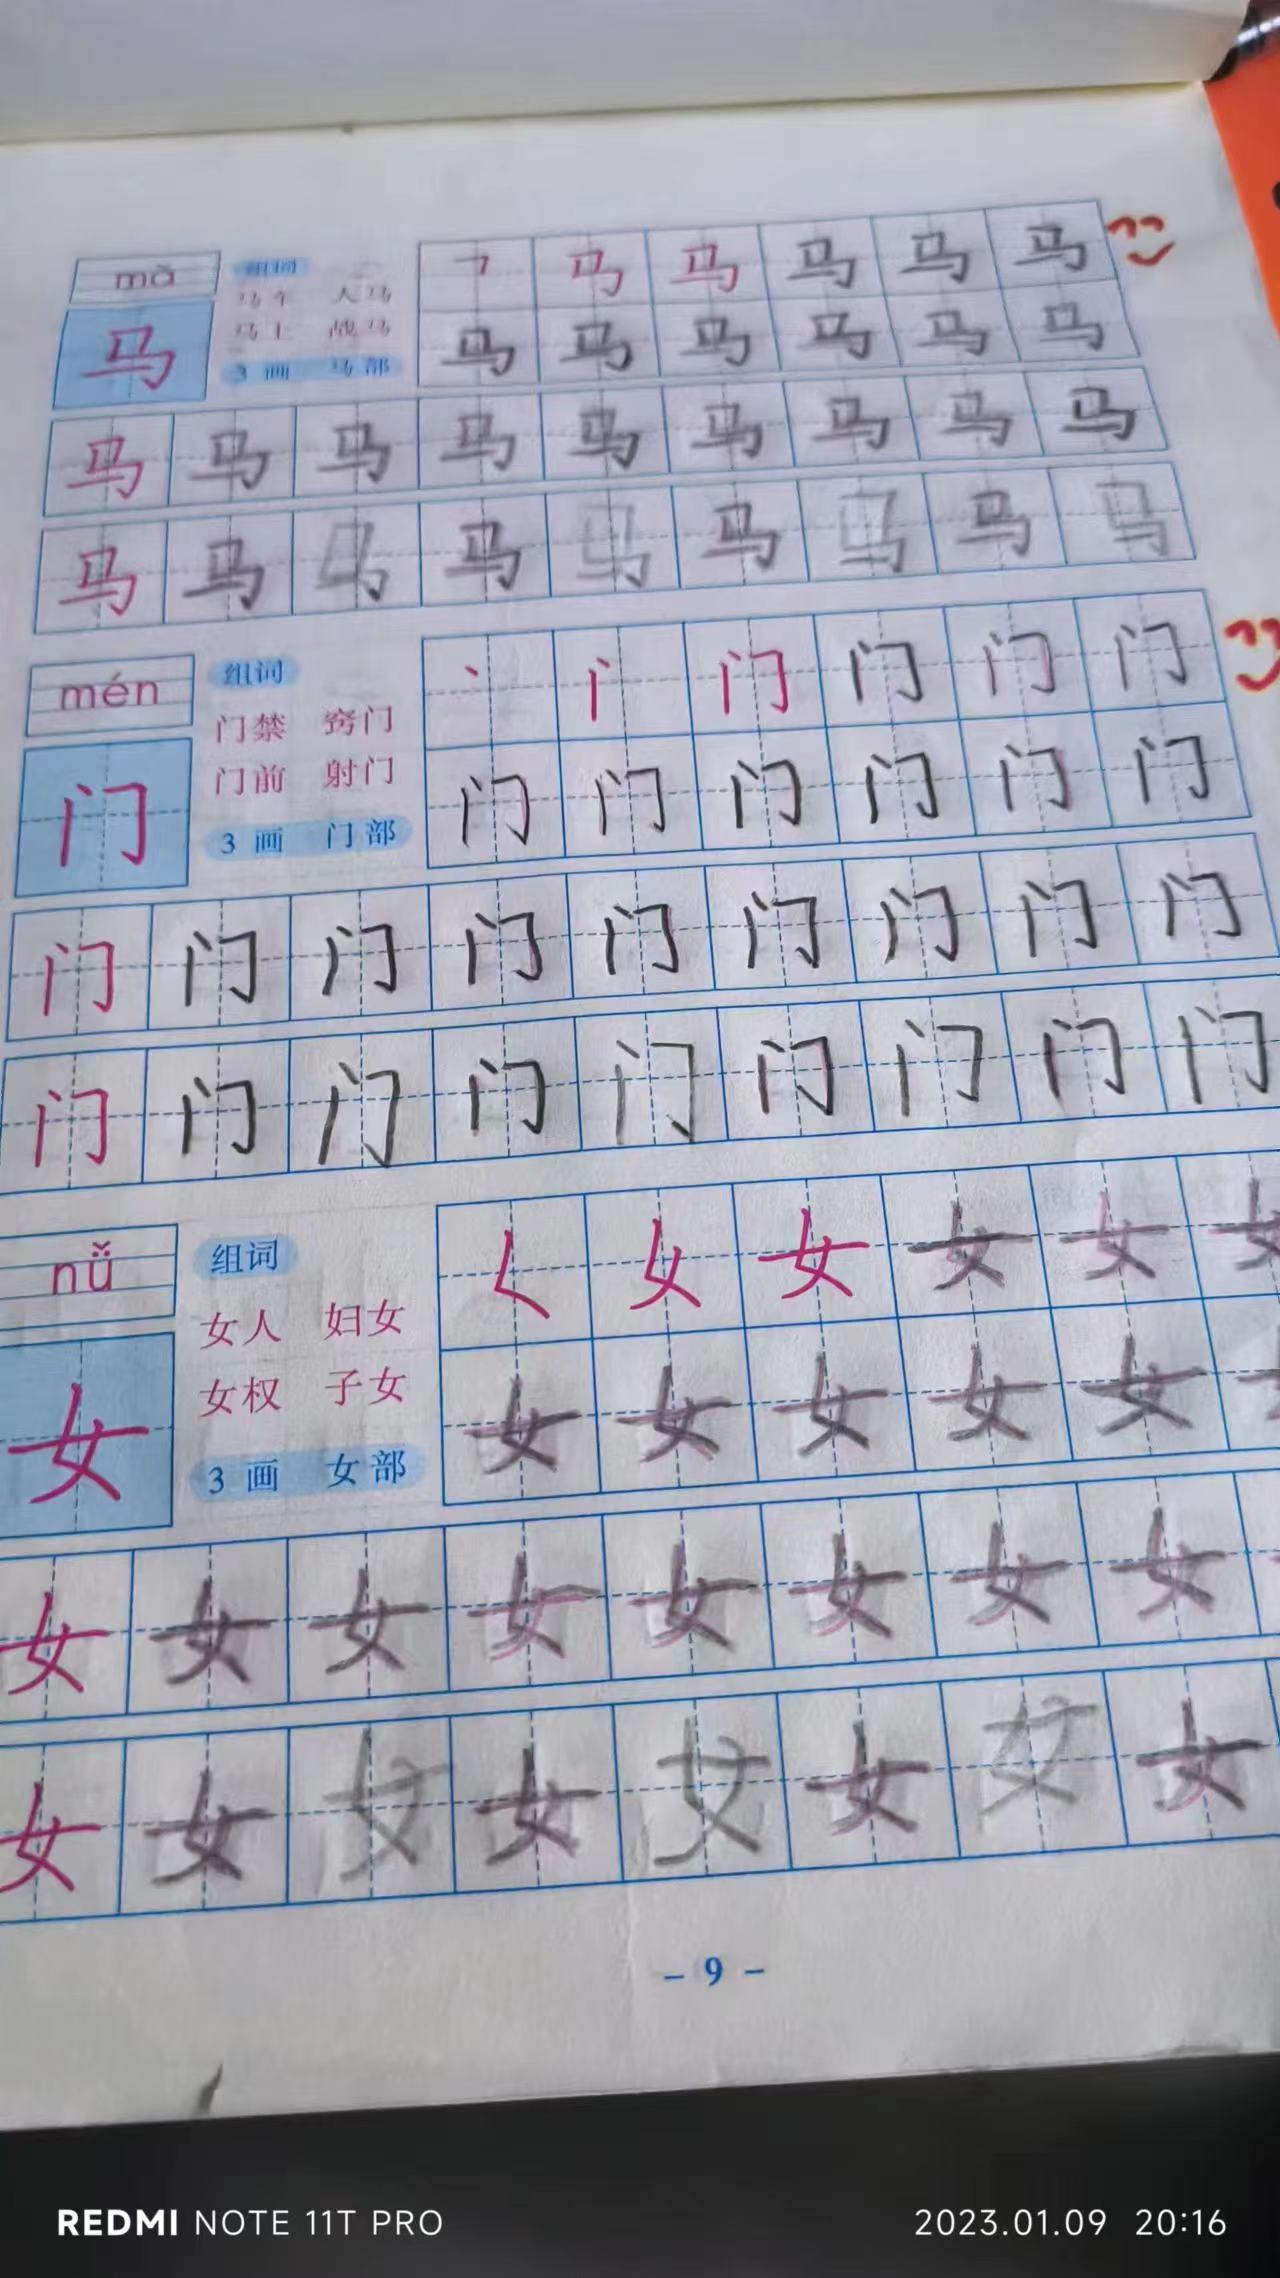 mǎ
组词
马车 人马
马上 战马
马
3 画 马部
㇕ 马 马 马 马 马
马 马 马 马 马 马
马 马 马 马 马 马 马 马 马
马 马 马 马 马 马 马 马 马
mén
组词
门禁 窍门
门前 射门
门
3 画 门部
丶 门 门 门 门
门 门 门 门 门 门
门 门 门 门 门 门 门 门 门
门 门 门 门 门 门 门 门 门
nǚ
组词
女人 妇女
女权 子女
女
3 画 女部
𡿨 女 女 女 女
女 女 女 女 女
女 女 女 女 女 女 女 女
女 女 女 女 女 女 女 女
- 9 -
REDMI NOTE 11T PRO
2023.01.09 20:16